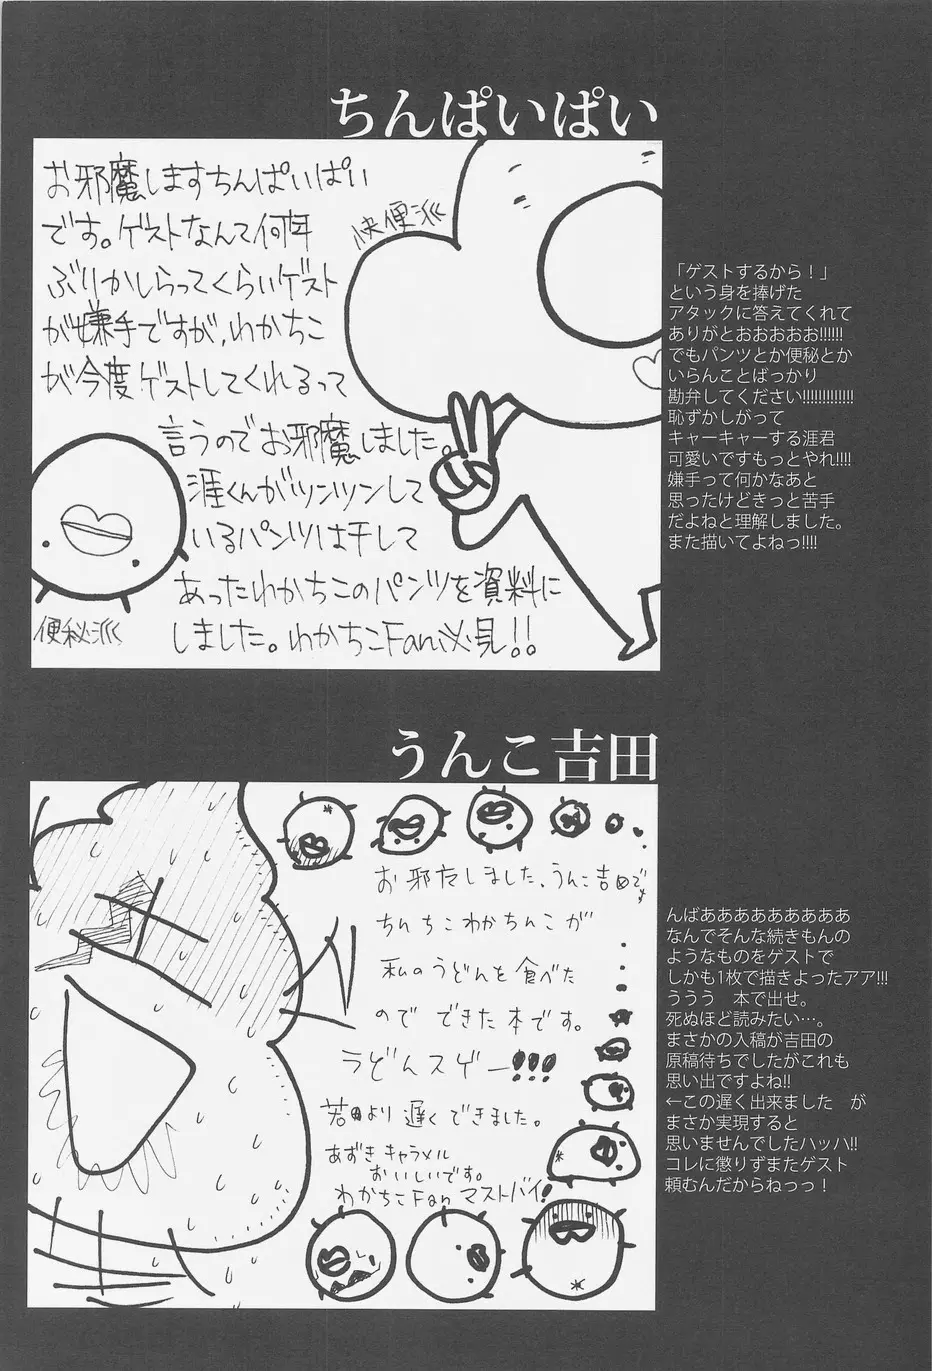 ちんぱいぱい
お邪魔しますちんぱいぱい
です。ゲストなんて何年
ぶりかしらってくらいゲスト
が嫌手ですが、わかちこ
が今度ゲストしてくれるって
言うのでお邪魔しました。
涯くんがツンツンして
いるパンツは干して
あったわかちこのパンツを資料に
しました。わかちこFan必見!!
快便派
便秘派
「ゲストするから！」
という身を捧げた
アタックに答えてくれて
ありがとおおおおお!!!!!!
でもパンツとか便秘とか
いらんことばっかり
勘弁してください!!!!!!!!!!!!!
恥ずかしがって
キャーキャーする涯君
可愛いですもっとやれ!!!!
嫌手って何かなあと
思ったけどきっと苦手
だよねと理解しました。
また描いてよねっ!!!!
うんこ吉田
お邪たしました、うんこ吉田です
ちんちこわかちんこが
私のうどんを食べた
ので できた本です。
うどんスゲー!!!
若田より遅くできました。
あずきキャラメル
おいしいです。
わかちこFanマストバイ!
んばああああああああああ
なんでそんな続きもんの
ようなものをゲストで
しかも1枚で描きよったアア!!!
ううう　本で出せ。
死ぬほど読みたい…。
まさかの入稿が吉田の
原稿待ちでしたがこれも
思い出ですよね!!
←この遅く出来ました　が
まさか実現すると
思いませんでしたハッハ!!
コレに懲りずまたゲスト
頼むんだからねっっ！